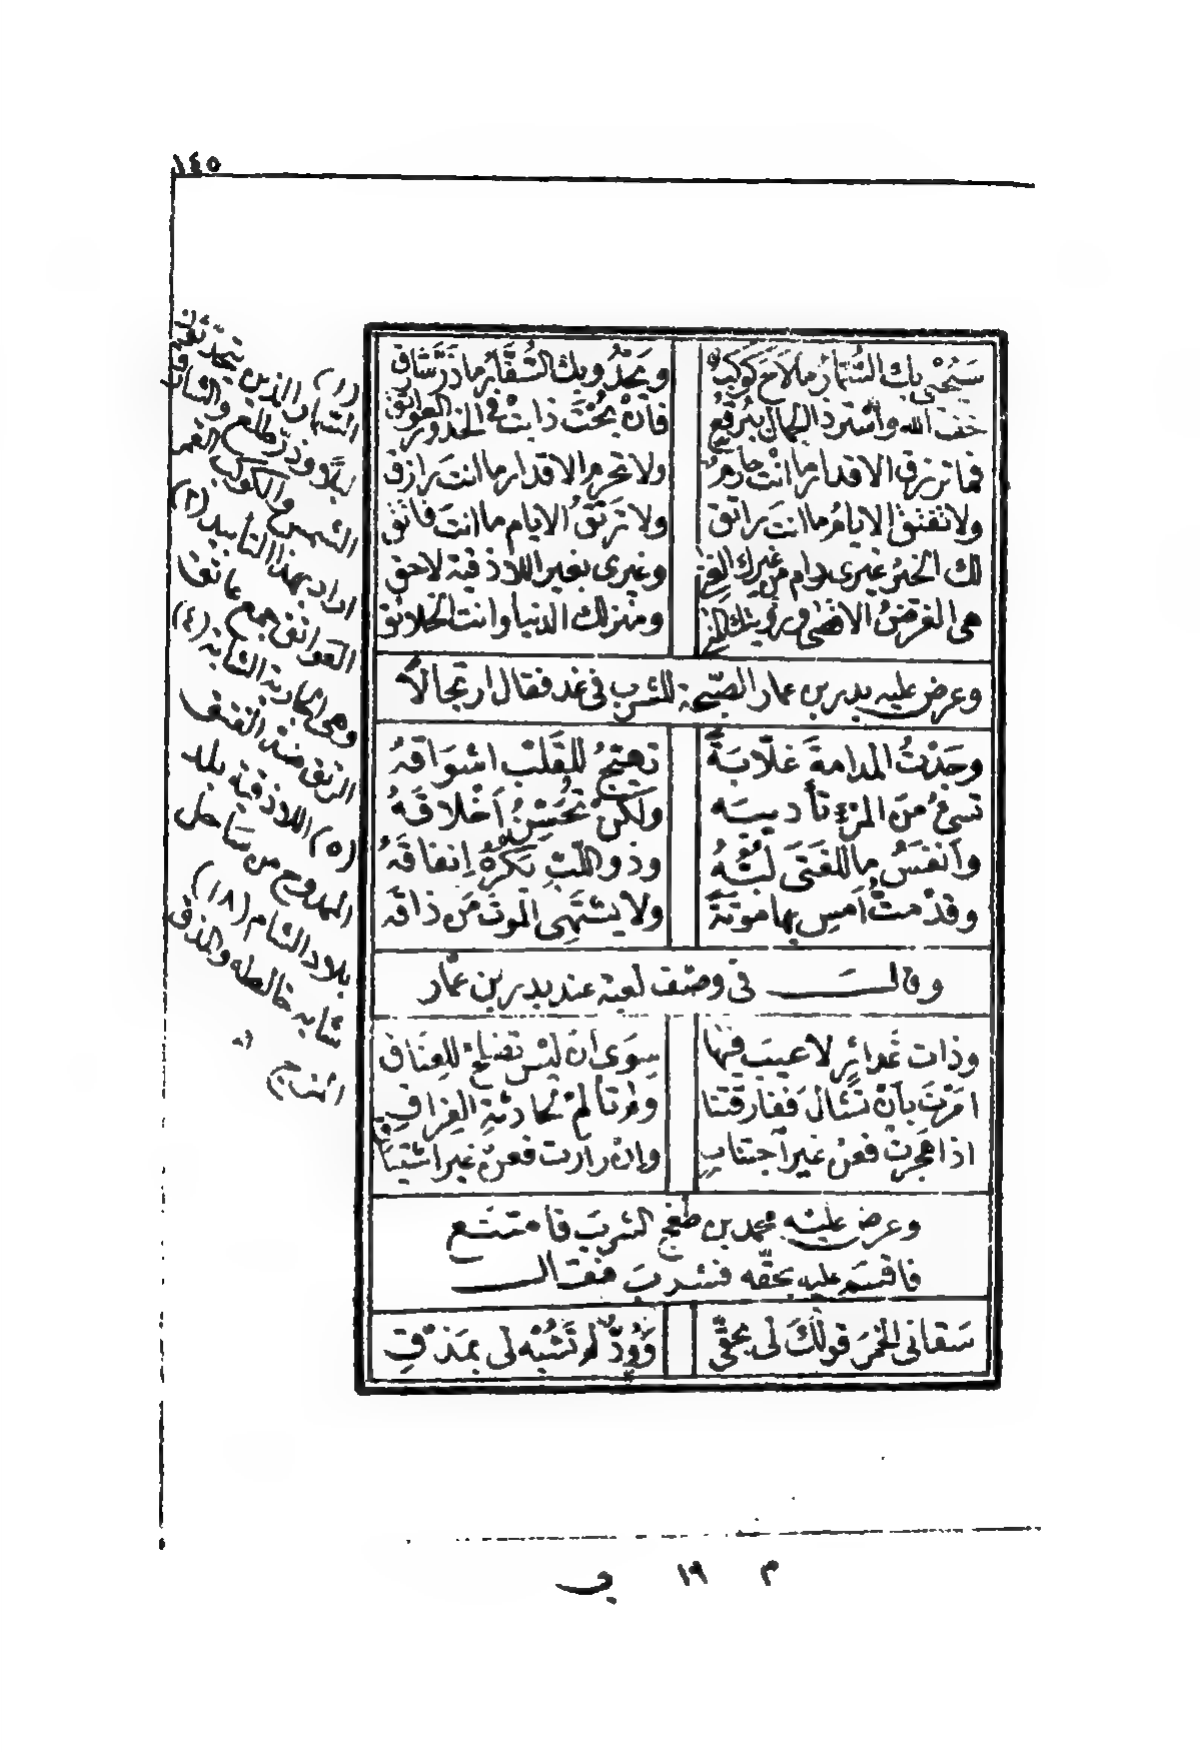 ١٤٥
سَيُحْيِي بك السُّمَّارُ ما لاحَ كَوكَبٌ ويَحْدُو بك السُّفَّارُ ما ذَرَّ شارق
خَفِ الله واسْتر ذا الجمال ببُرقُعٍ فان لُحْتَ ذابتْ في الخدور العواتق
فما ترزق الاقدار ما انت حارم ولا تحرم الاقدار ما انتَ رازق
ولا تفتق الايامُ ما انتَ راتق ولا ترتقُ الايام ما انتَ فاتق
لك الخيرُ غيري رام من غيرك الغنى وغيرى بغير اللاذقية لاحق
هى الغرضُ الاقصى ورؤيتك المنى ومنزلك الدنيا وانت الخلائق
وعرض عليه بدر بن عمار الصّبحة للشرب فى غد فقال ارتجالاً
وجَدْتُ المدامةَ غلّابَةً تهيّجُ للقَلْب اشوَاقَهُ
تسىءُ منَ المرْءِ تأديبَه ولكنْ تُحسّنُ أخْلاقَهُ
وأنفسُ ما للفَتَى لبُّهُ وذو اللبّ يَكرَهُ إنفاقَهُ
وقدْ متُّ أمسِ بها موتَةً ولا يشتَهِى الموتَ مَن ذاقَه
وقالـــ فى وصف لعبة عند بدر بن عمّار
وذات غَدائِرٍ لا عيبَ فيها سِوَى أن ليْسَ تصْلحُ للعِنَاقِ
امَرْتَ بأنْ تُشَالَ ففارقتنا وما أَلِمتْ لحادثةِ الفِراقِ
اذا هَجرتْ فعنْ غيرِ اجتنابِ وإنْ زارت فعنْ غير اشتياق
وعرض عليه محمد بن طغج الشربَ فامتنع
فاقسَم عليه بحقّه فشربَ فقالــ
سَقانى الخمرَ قولُكَ لى بحقّى وَوُدٌّ لم تَشُبْهُ لى بمَذْقِ
(١)
السُّمار الذين يتحدثون
ليلا وذرّ طلع والشارق
الشمس والكوكب القمر
اراد بهذا التأبيد (٢)
العواتق جمع عاتق
وهى الجارية الشابة (٤)
الرتق ضدّ الفتق
(٥) اللاذقية بلد
الممدوح من ساحل
بلاد الشام (١٨)
شابه خالطه والمذق
المزج
م ١٩